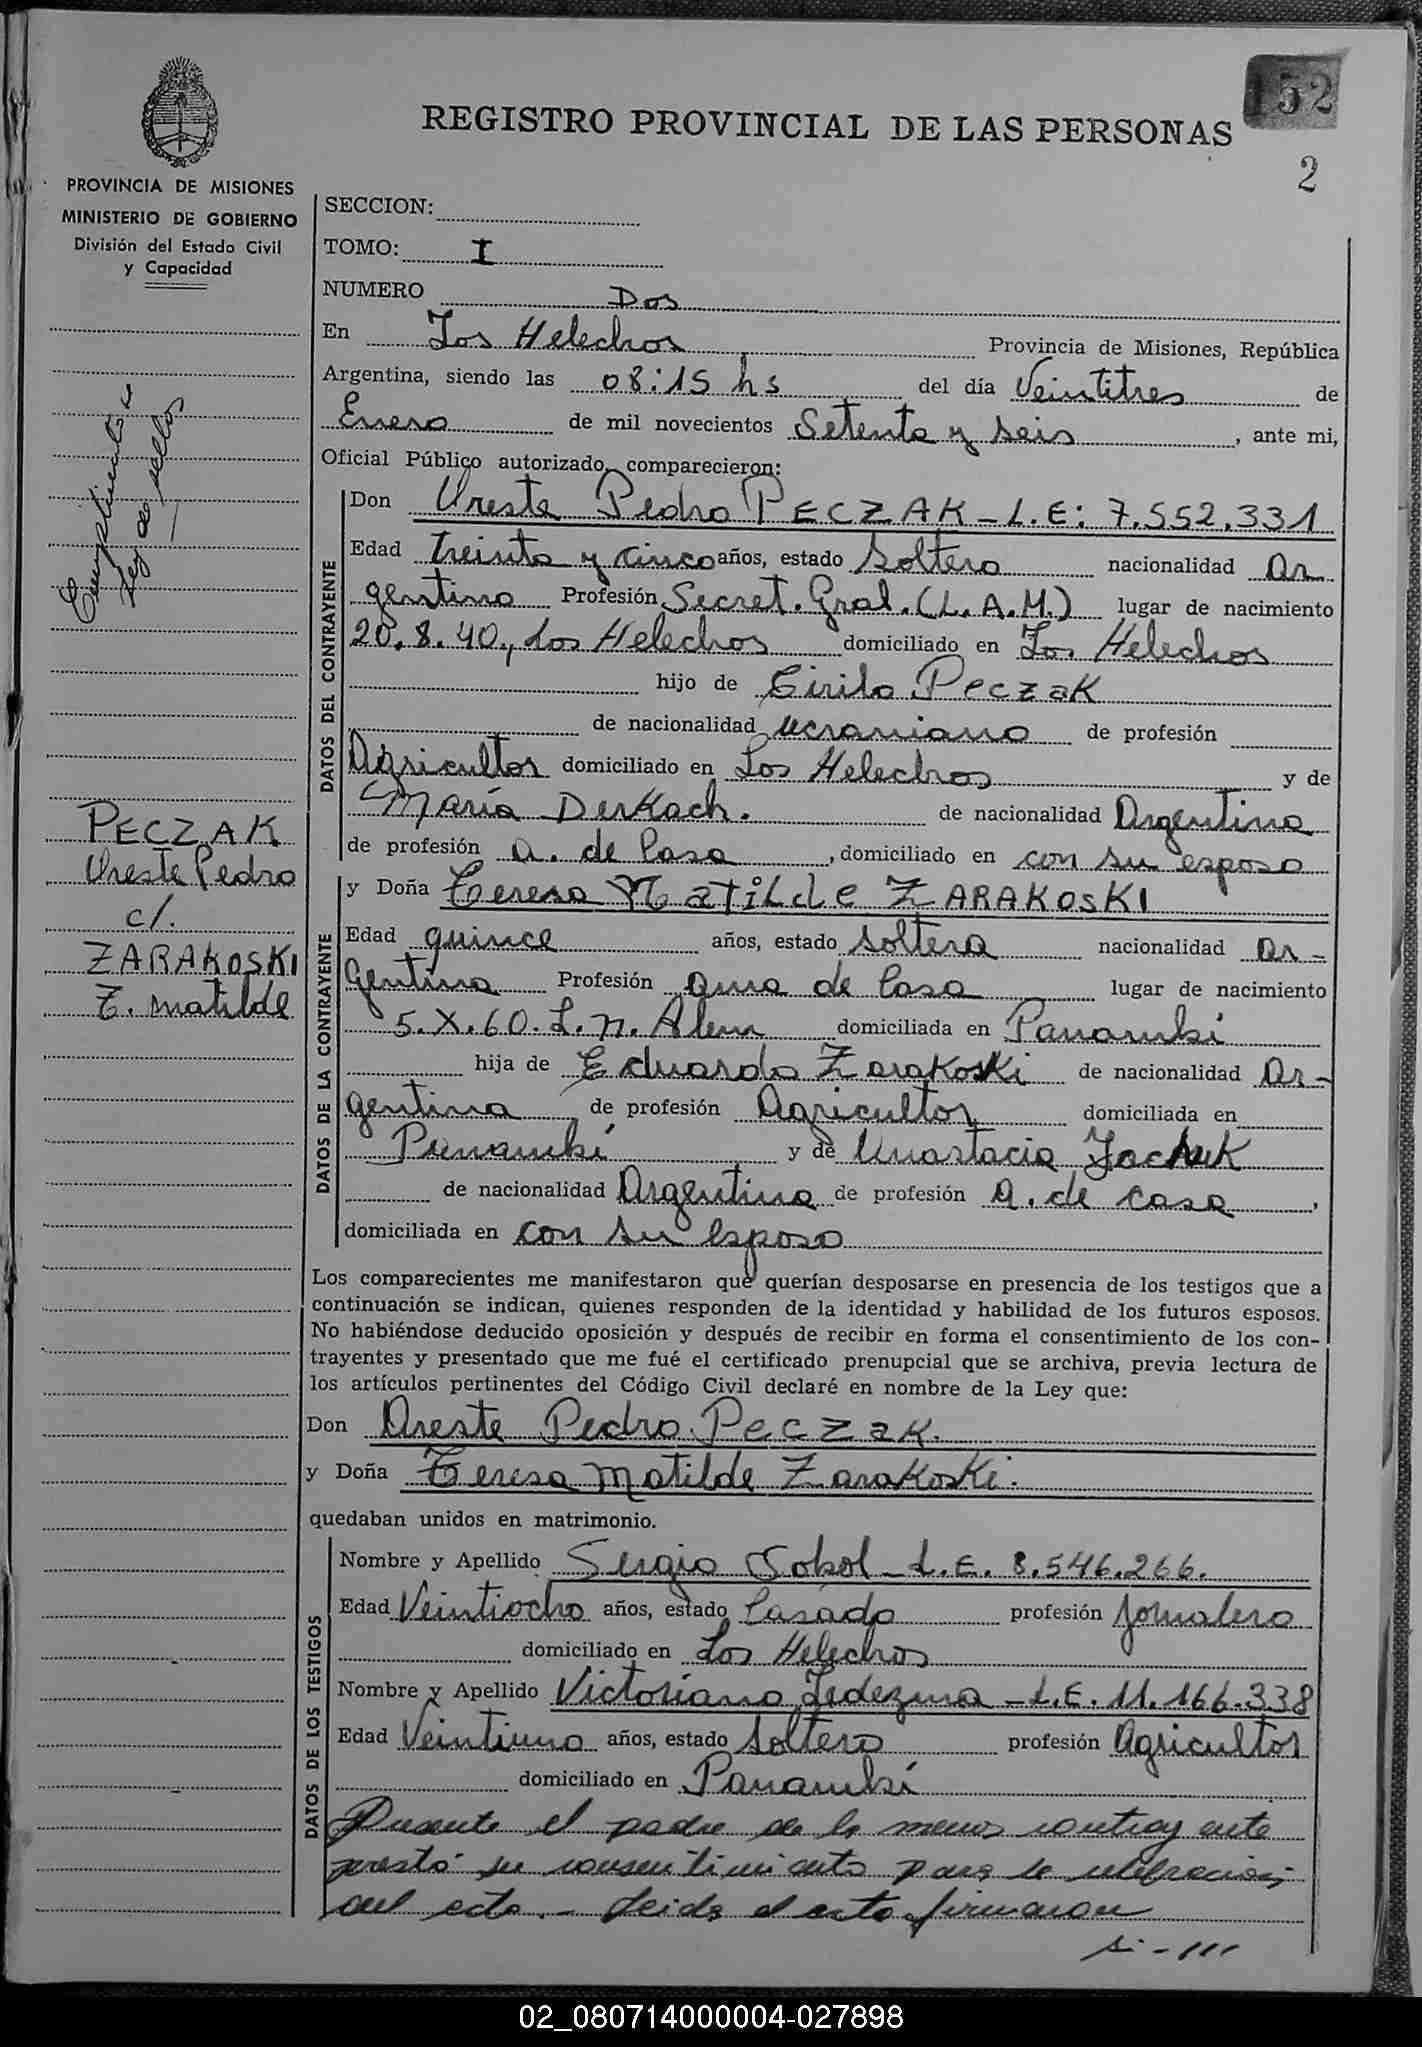 152
REGISTRO PROVINCIAL DE LAS PERSONAS
2
PROVINCIA DE MISIONES
MINISTERIO DE GOBIERNO
División del Estado Civil
y Capacidad
SECCION:
TOMO: I
NUMERO Dos
En Los Helechos Provincia de Misiones, República
Argentina, siendo las 08:15 hs del día Veintitres de
Enero de mil novecientos Setenta y seis, ante mi,
Oficial Público autorizado, comparecieron:
DATOS DEL CONTRAYENTE
Don Oreste Pedro PECZAK - L.E: 7.552.331
Edad treinta y cinco años, estado Soltero nacionalidad Ar
gentino Profesión Secret. Gral. (L.A.M.) lugar de nacimiento
20.8.40., Los Helechos domiciliado en Los Helechos
hijo de Cirilo Peczak
de nacionalidad ucraniano de profesión
Agricultor domiciliado en Los Helechos y de
María Derkach. de nacionalidad Argentina
de profesión A. de Casa, domiciliado en con su esposo
PECZAK
Oreste Pedro
c/.
ZARAKOSKI
T. Matilde
DATOS DE LA CONTRAYENTE
y Doña Teresa Matilde ZARAKOSKI
Edad quince años, estado soltera nacionalidad Ar-
gentina Profesión Ama de Casa lugar de nacimiento
5.X.60. L.N. Alem domiciliada en Panambí
hija de Eduardo Zarakoski de nacionalidad Ar-
gentina de profesión Agricultor domiciliada en
Panambí y de Anastacia
de nacionalidad Argentina de profesión A. de casa,
domiciliada en con su esposo
Los comparecientes me manifestaron que querían desposarse en presencia de los testigos que a
continuación se indican, quienes responden de la identidad y habilidad de los futuros esposos.
No habiéndose deducido oposición y después de recibir en forma el consentimiento de los con-
trayentes y presentado que me fué el certificado prenupcial que se archiva, previa lectura de
los artículos pertinentes del Código Civil declaré en nombre de la Ley que:
Don Oreste Pedro Peczak.
y Doña Teresa Matilde Zarakoski.
quedaban unidos en matrimonio.
DATOS DE LOS TESTIGOS
Nombre y Apellido Sergio Sobol - L.E. 8.546.266.
Edad Veintiocho años, estado Casado profesión Jornalero
domiciliado en Los Helechos
Nombre y Apellido Victoriano Ledezma - L.E. 11.166.338
Edad Veintiuno años, estado Soltero profesión Agricultor
domiciliado en Panambí
Presente el padre de la menor contrayente
prestó su consentimiento para la celebración
del acto. - Leida el acta firmaron
02_080714000004-027898